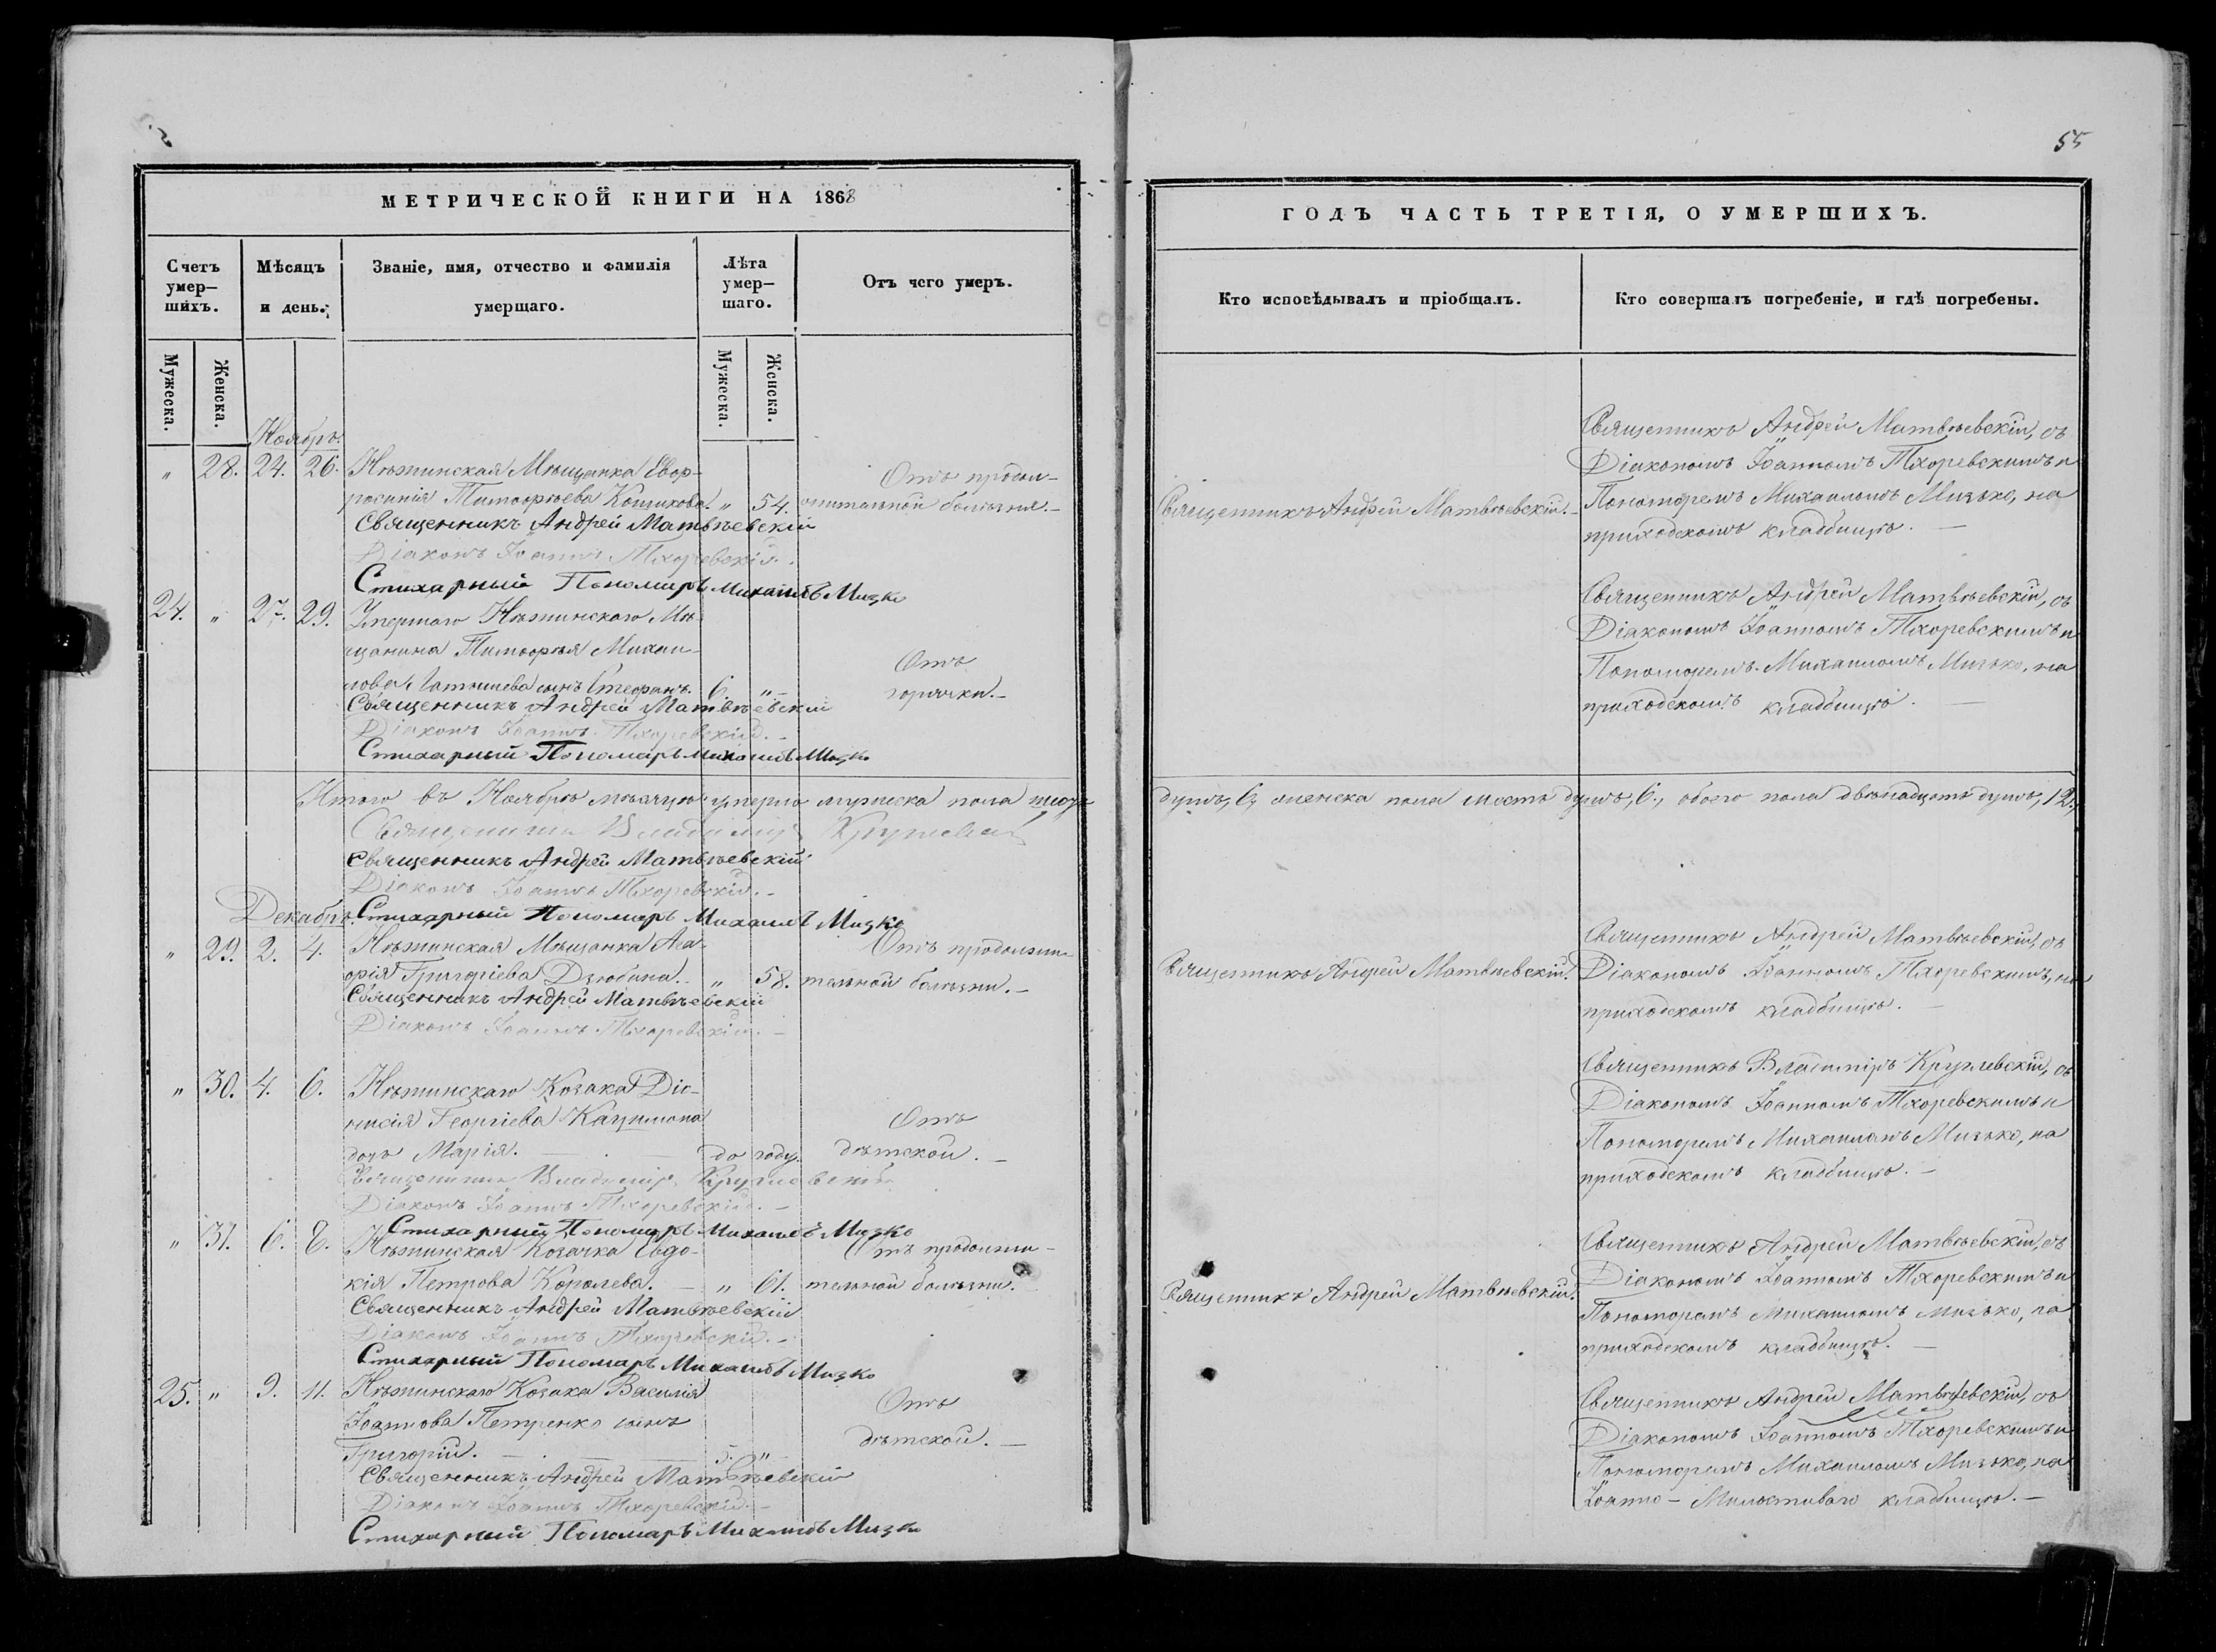 55
МЕТРИЧЕСКОЙ КНИГИ НА 1868
ГОДЪ ЧАСТЬ ТРЕТІЯ, О УМЕРШИХЪ.
Счетъ умер—шихъ.
Мѣсяцъ и день.
Званіе, имя, отчество и фамилія умершаго.
Лѣта умер—шаго.
Отъ чего умеръ.
Кто исповѣдывалъ и пріобщалъ.
Кто совершалъ погребеніе, и гдѣ погребены.
Мужеска.
Женска.
Мужеска.
Женска.
Ноябрь.
" 28. 24. 26. Нѣжинская Мѣщанка Евфросинія Тимофѣева " 54.
Отъ продолжительной болѣзни.—
Священникъ Андрей Матвѣевскій.—
Священникъ Андрей Матвѣевскій, съ
Діакономъ Іоанномъ Тхоревскимъ и
Пономаремъ Михаиломъ Мизько, на
приходскомъ кладбищѣ.—
Священникъ Андрей Матвѣевскій
Діаконъ Іоаннъ Тхоревскій.
Стихарный Пономарь Михаилъ Мизко
24. " 27. 29. Умершаго Нѣжинскаго Мѣ-
щанина Тимофѣя Михаи-
лова сынъ Стефанъ. 6. "
Отъ
горячки.—
Священникъ Андрей Матвѣевскій, съ
Діакономъ Іоанномъ Тхоревскимъ и
Пономаремъ Михаиломъ Мизько, на
приходскомъ кладбищѣ.—
Священникъ Андрей Матвѣевскій
Діаконъ Іоаннъ Тхоревскій.—
Стихарный Пономарь Михаилъ Мизко
Итого въ Ноябрѣ мѣсяцѣ умерло мужеска пола шесть
душъ, 6, женска пола шесть душъ, 6., обоего пола двѣнадцать душъ, 12.
Священникъ Владиміръ
Священникъ Андрей Матвѣевскій
Діаконъ Іоаннъ Тхоревскій.—
Стихарный Пономарь Михаилъ Мизко
Декабрь.
" 29. 2. 4. Нѣжинская Мѣщанка Ага-
фія Григоріева Дзюбина. " 58.
Отъ продолжи-
тельной болѣзни.—
Священникъ Андрей Матвѣевскій.
Священникъ Андрей Матвѣевскій, съ
Діакономъ Іоанномъ Тхоревскимъ, на
приходскомъ кладбищѣ.—
Священникъ Андрей Матвѣевскій
Діаконъ Іоаннъ Тхоревскій.—
" 30. 4. 6. Нѣжинскаго Козака Діо-
нисія Георгіева
дочь Марія. — до году.
Отъ
дѣтской.—
Священникъ Владиміръ Круглевскій, съ
Діакономъ Іоанномъ Тхоревскимъ и
Пономаремъ Михаиломъ Мизько, на
приходскомъ кладбищѣ.—
Священникъ Владиміръ Круглевскій
Діаконъ Іоаннъ Тхоревскій.—
Стихарный Пономарь Михаилъ Мизко
" 31. 6. 8. Нѣжинская Козачка Евдо-
кія Петрова Королева. — " 61.
Отъ продолжи-
тельной болѣзни.—
Священникъ Андрей Матвѣевскій.
Священникъ Андрей Матвѣевскій, съ
Діакономъ Іоанномъ Тхоревскимъ и
Пономаремъ Михаиломъ Мизько, на
приходскомъ кладбищѣ.—
Священникъ Андрей Матвѣевскій
Діаконъ Іоаннъ Тхоревскій.—
Стихарный Пономарь Михаилъ Мизко
25. " 9. 11. Нѣжинскаго Козака Василія
Іоаннова Петренко сынъ
Григорій. — 5. "
Отъ
дѣтской.—
Священникъ Андрей Матвѣевскій, съ
Діакономъ Іоанномъ Тхоревскимъ и
Пономаремъ Михаиломъ Мизько, на
Іоанно-Милостиваго кладбищѣ.—
Священникъ Андрей Матвѣевскій
Діаконъ Іоаннъ Тхоревскій.—
Стихарный Пономарь Михаилъ Мизко